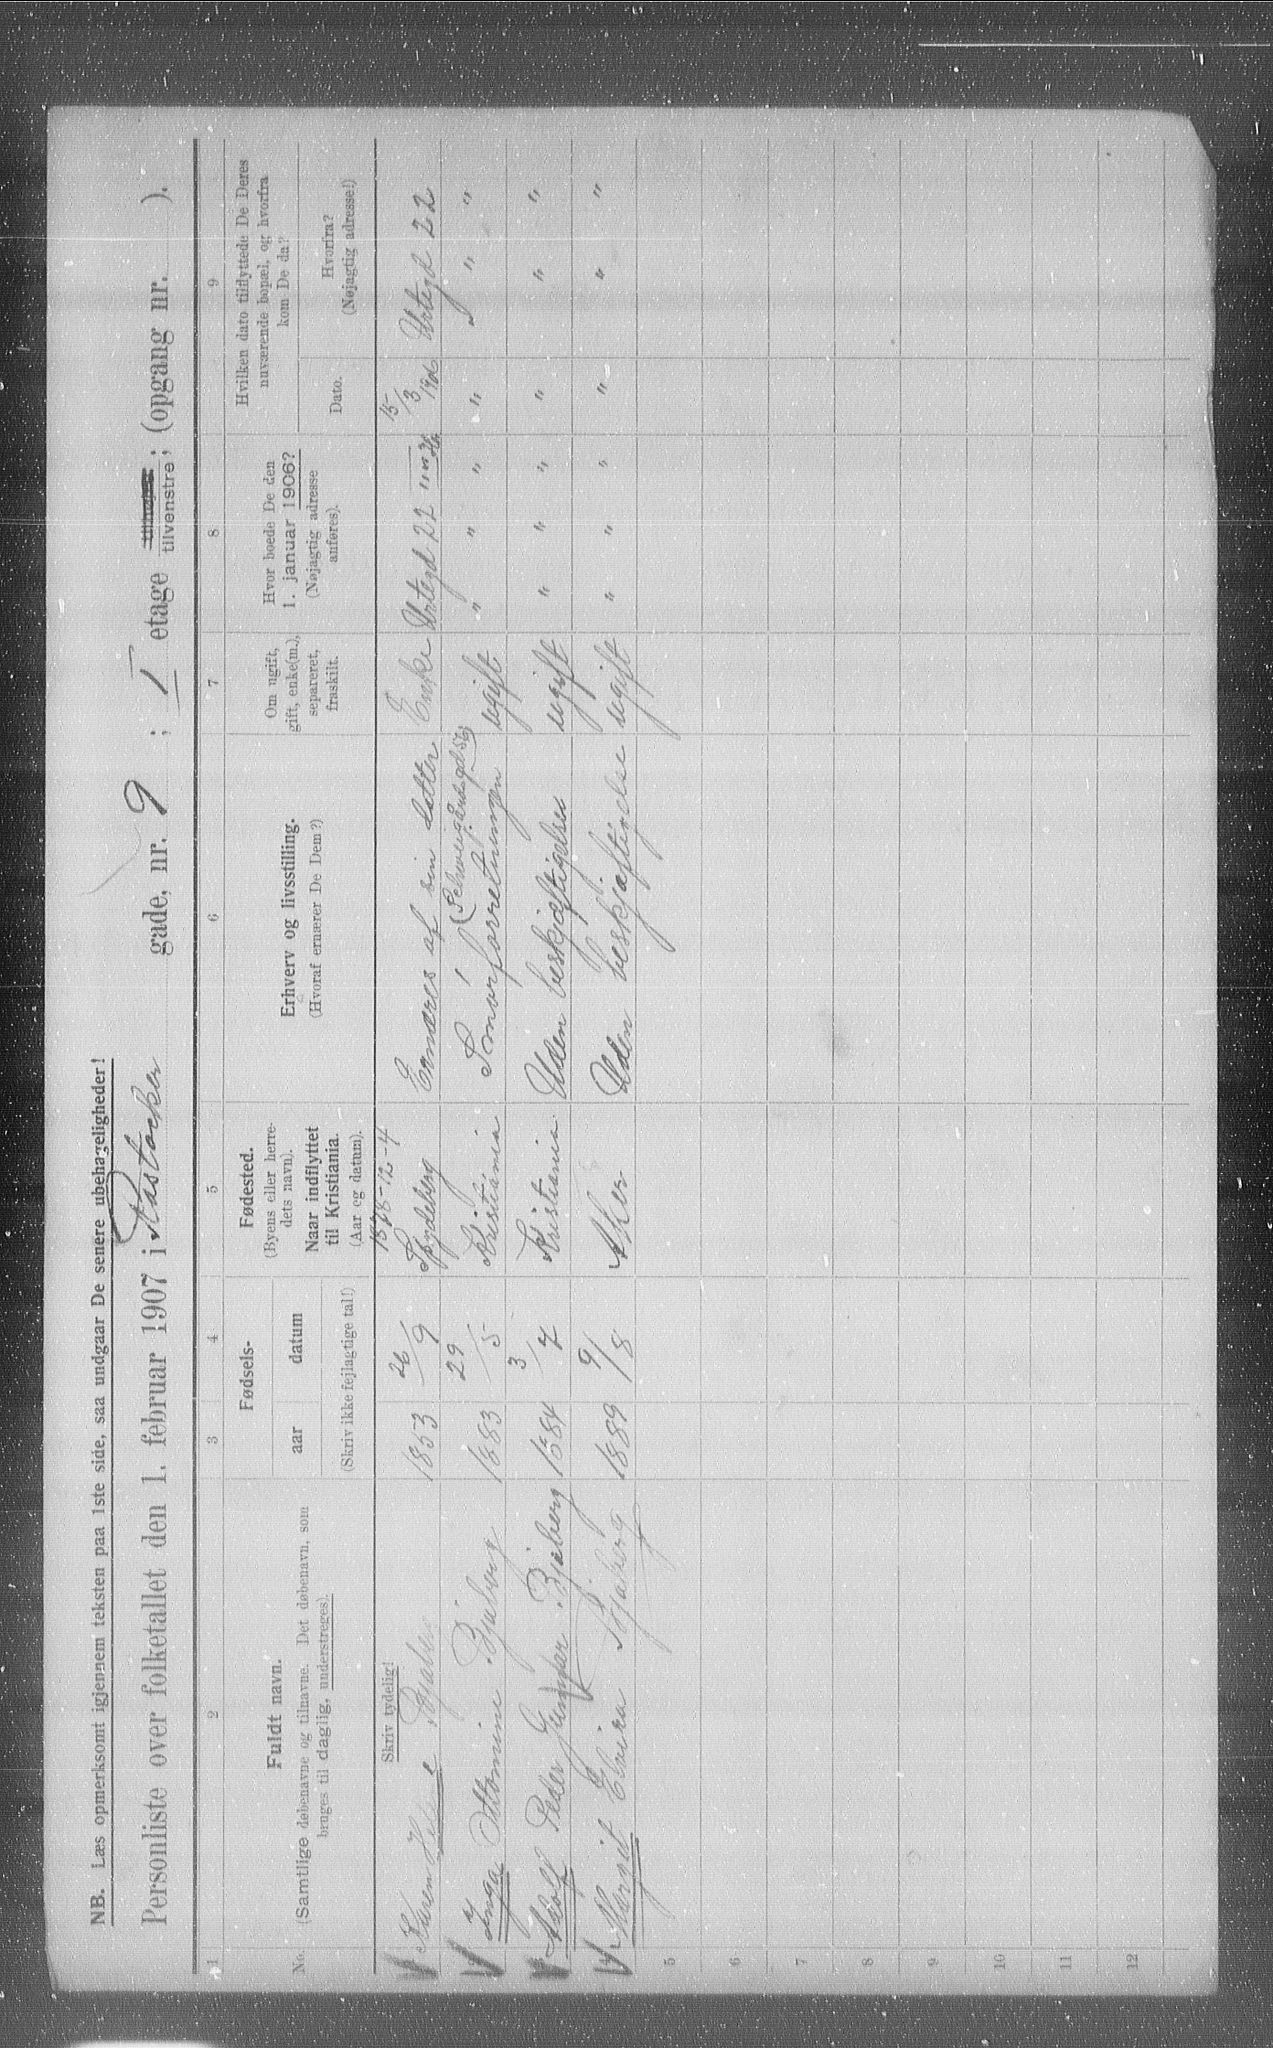 NB. Læs opmerksomt igjennem teksten paa 1ste side, saa undgaar De senere ubehageligheder!
Personliste over folketallet den 1. februar 1907 i Rostocker gade, nr. 9 ; I etage tilvenstre; (opgang nr. ).
1 2 3 4 5 6 7 8 9
No.
Fuldt navn.
(Samtlige døbenavne og tilnavne. Det døbenavn, som
bruges til daglig, understreges).
Fødsels-
aar datum
(Skriv ikke fejlagtige tal!)
Fødested.
(Byens eller herre-
dets navn).
Naar indflyttet
til Kristiania.
(Aar og datum).
Erhverv og livsstilling.
(Hvoraf ernærer De Dem?)
Om ugift,
gift, enke(m.),
separeret,
fraskilt.
Hvor boede De den
1. januar 1906?
(Nøjagtig adresse
anføres).
Hvilken dato tilflyttede De Deres
nuværende bopæl, og hvorfra
kom De da?
Dato.
Hvorfra?
(Nøjagtig adresse!)
Skriv tydelig!
Karen Helene 1853 26/9 1878-12-4 Spydeberg Ernæres af sin datter Enke Urtegd 22 15/3 Urtegd 22
Inga Ottomine Bjaberg 1883 29/5 Kristiania Smørforretningen ugift " " " " " "
Adolf Peder Gunnar Bjaberg 1884 3/7 Kristiania Uden beskjæftigelse ugift " " " " " "
Margit Elvira Bjaberg 1889 9/8 Aker Uden beskjæftigelse ugift " " " " " "
5
6
7
8
9
10
11
12